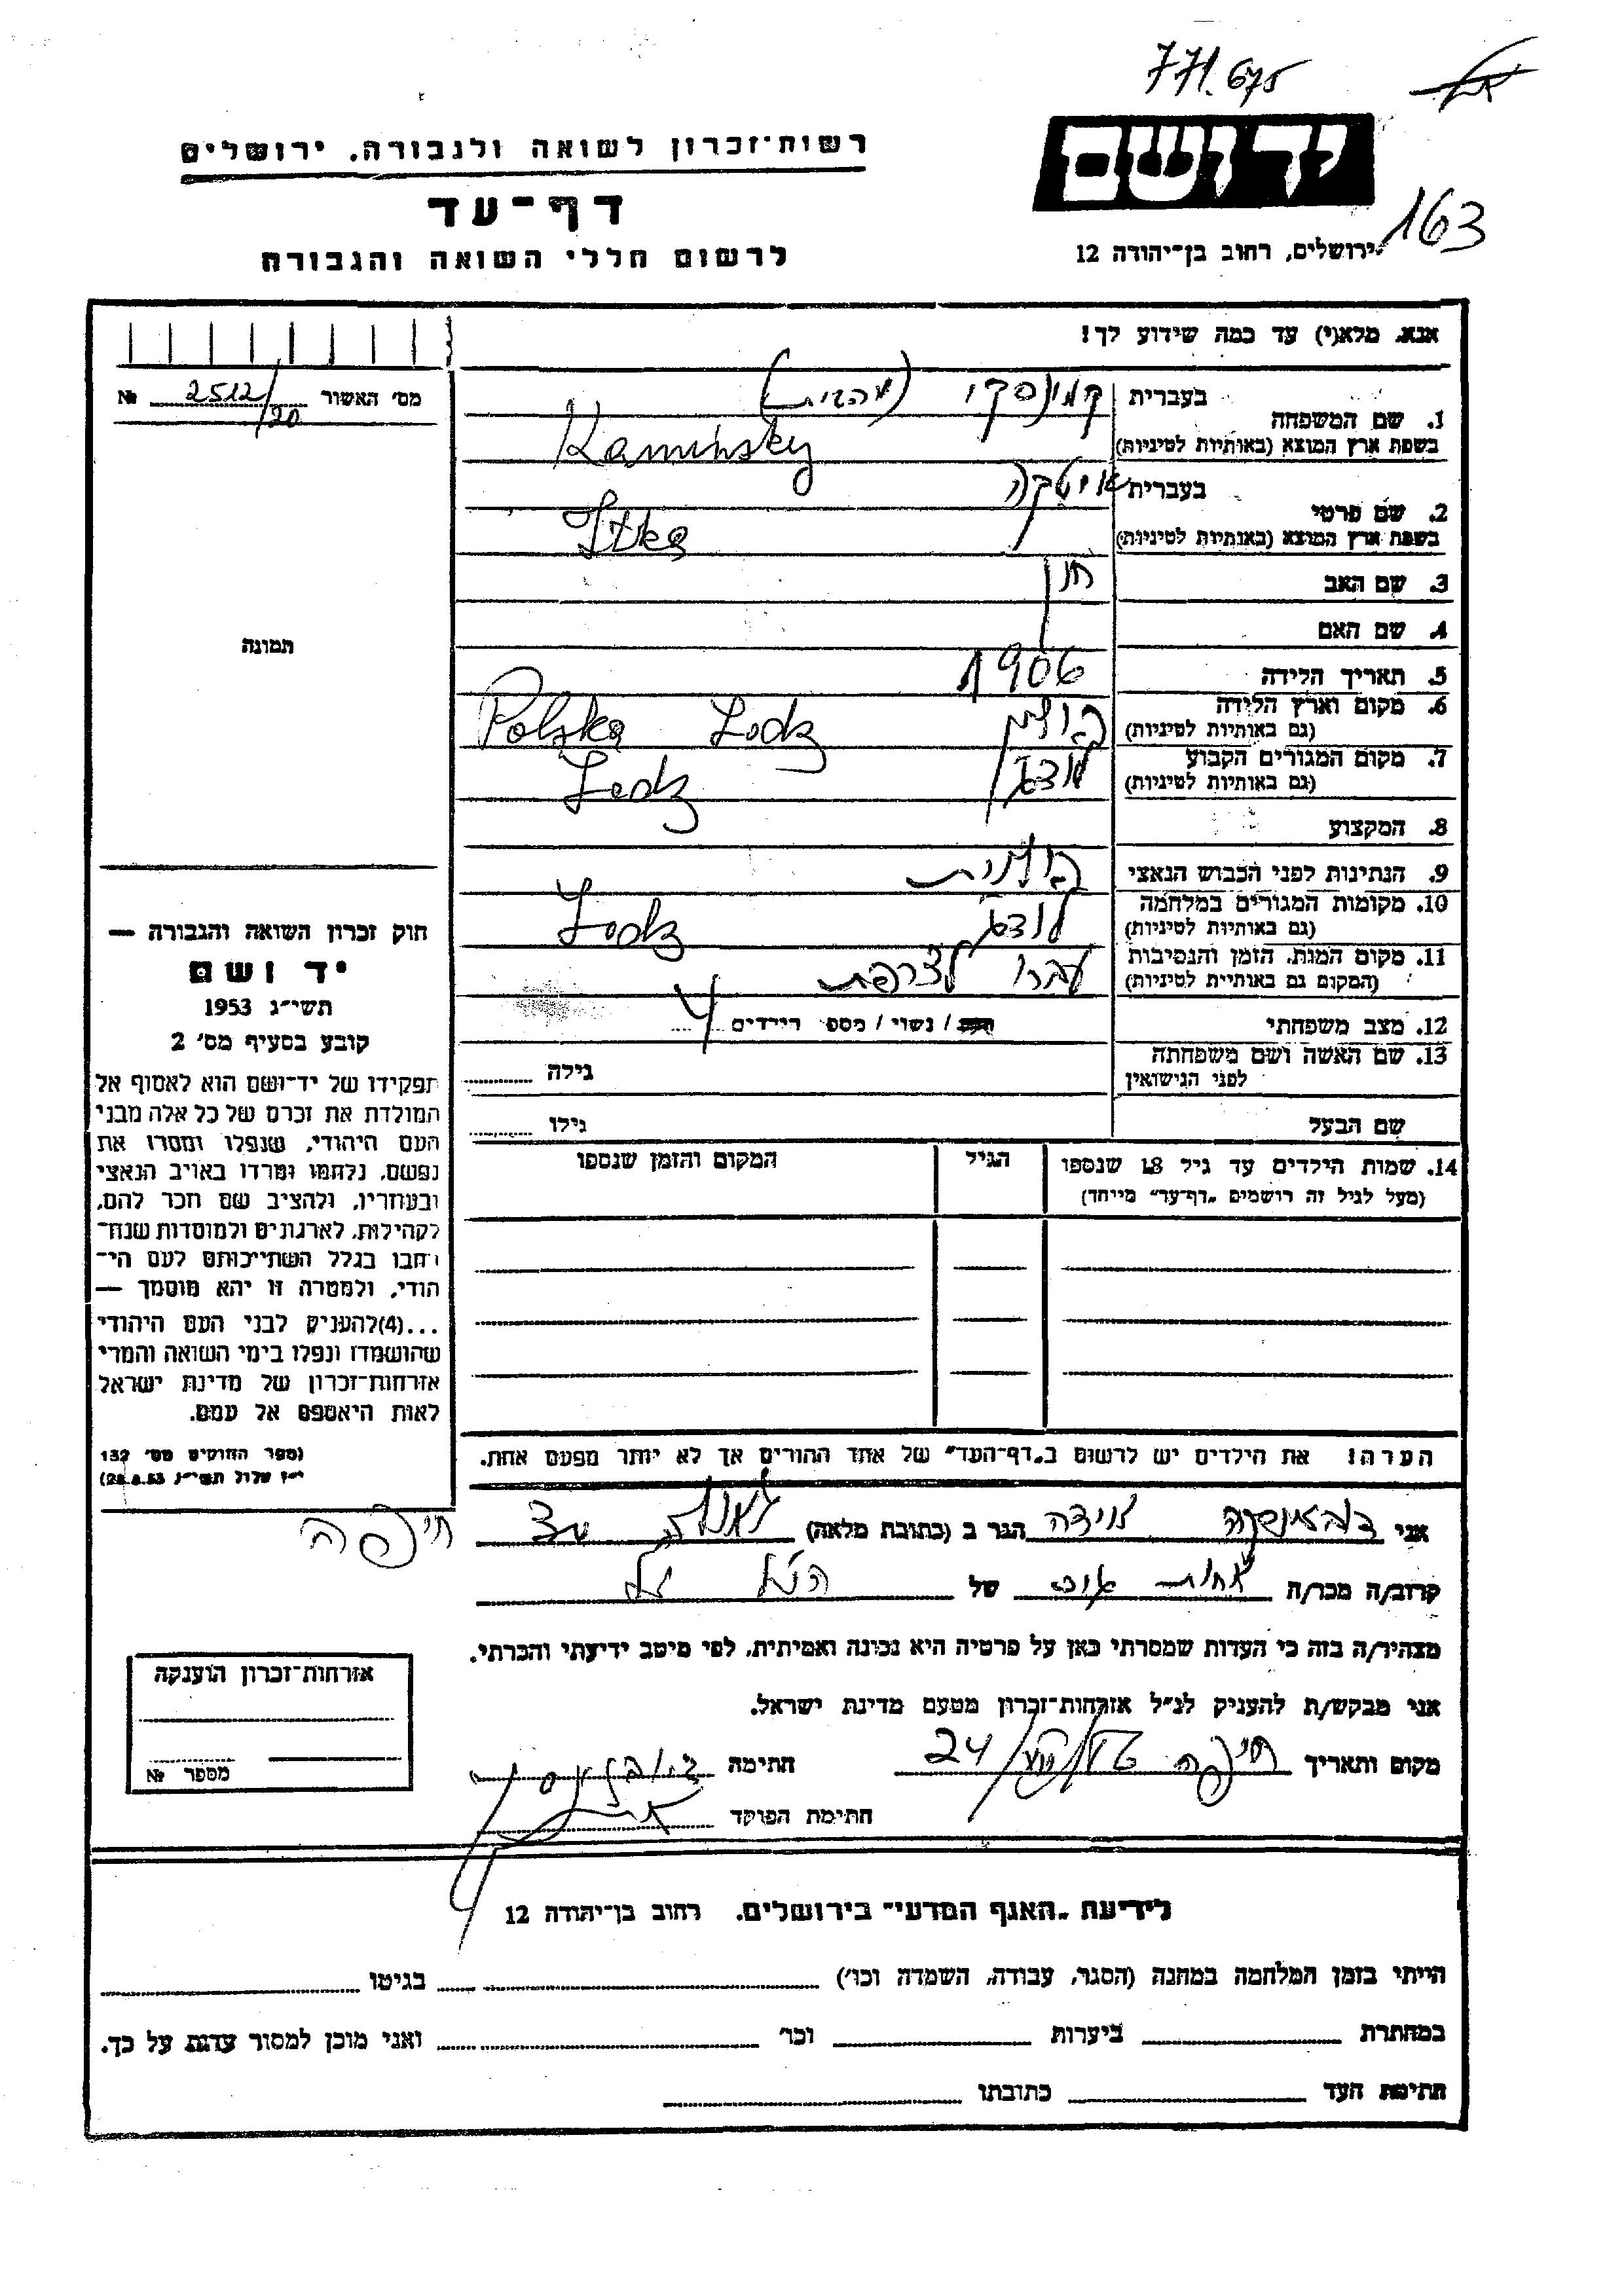 771.675
יד ושם
163
ירושלים, רחוב בן־יהודה 12
רשות־זכרון לשואה ולגבורה, ירושלים
דף־עד
לרשום חללי השואה והגבורה
אנא, מלא(י) עד כמה שידוע לך!
מס' האשור 2512/20 №
1. שם המשפחה בעברית קמינסקי
בשפת ארץ המוצא (באותיות לטיניות) Kaminsky
2. שם פרטי בעברית איטקה
בשפת ארץ המוצא (באותיות לטיניות) Itka
3. שם האב חנן
4. שם האם
5. תאריך הלידה 1906
6. מקום וארץ הלידה פולין Lodz Polska
(גם באותיות לטיניות)
7. מקום המגורים הקבוע לודז' Lodz
(גם באותיות לטיניות)
8. המקצוע
9. הנתינות לפני הכבוש הנאצי פולנית
10. מקומות המגורים במלחמה לודז' Lodz
(גם באותיות לטיניות)
11. מקום המות, הזמן והנסיבות עברו לצרפת
(המקום גם באותיות לטיניות)
12. מצב משפחתי רווק / נשוי / מספר הילדים 4
13. שם האשה ושם משפחתה
לפני הנישואין גילה
שם הבעל גילו
14. שמות הילדים עד גיל 18 שנספו הגיל המקום והזמן שנספו
(מעל לגיל זה רושמים „דף־עד" מייחד)
הערה! את הילדים יש לרשום ב„דף־העד" של אחד ההורים אך לא יותר מפעם אחת.
תמונה
חוק זכרון השואה והגבורה —
יד ושם
תשי"ג 1953
קובע בסעיף מס' 2
תפקידו של יד־ושם הוא לאסוף אל
המולדת את זכרם של כל אלה מבני
העם היהודי, שנפלו ומסרו את
נפשם, נלחמו ומרדו באויב הנאצי
ובעוזריו, ולהציב שם וזכר להם,
לקהילות, לארגונים ולמוסדות שנח־
רבו בגלל השתייכותם לעם הי־
הודי, ולמטרה זו יהא מוסמך —
...(4)להעניק לבני העם היהודי
שהושמדו ונפלו בימי השואה והמרי
אזרחות־זכרון של מדינת ישראל
לאות היאספם אל עמם.
(ספר החוקים מס' 132
י"ז אלול תשי"ג 28.8.53)
אני הגר ב (כתובת מלאה) חיפה
קרוב/ה מכר/ה של הנ"ל
מצהיר/ה בזה כי העדות שמסרתי כאן על פרטיה היא נכונה ואמיתית, לפי מיטב ידיעתי והכרתי.
אני מבקש/ת להעניק לנ"ל אזרחות־זכרון מטעם מדינת ישראל.
מקום ותאריך חיפה 24 חתימה
חתימת הפוקד
אזרחות־זכרון הוענקה
מספר №
לידיעת „האגף המדעי" בירושלים, רחוב בן־יהודה 12
הייתי בזמן המלחמה במחנה (הסגר, עבודה, השמדה וכו') בגיטו
במחתרת ביערות וכו' ואני מוכן למסור עדות על כך.
חתימת העד כתובתו